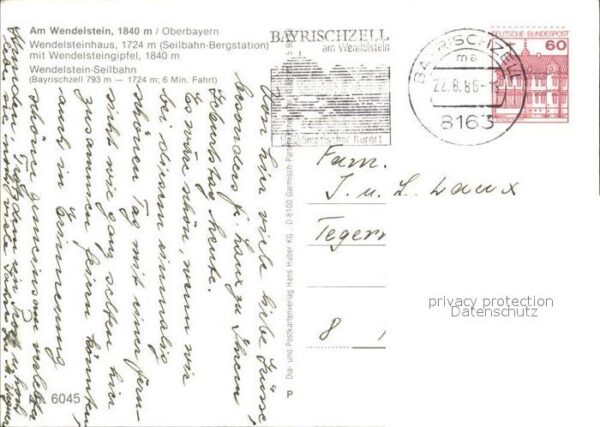 Am Wendelstein, 1840 m / Oberbayern
Wendelsteinhaus, 1724 m (Seilbahn-Bergstation)
mit Wendelsteingipfel, 1840 m
Wendelstein-Seilbahn
(Bayrischzell 793 m — 1724 m; 6 Min. Fahrt)
BAYRISCHZELL
am Wendelstein
Klimatischer Kurort
BAYRISCHZELL
ma
22.8.86-
8163
DEUTSCHE BUNDESPOST
60
viele liebe Grüsse,
besonders Fr. Laux zu Ihrem
Geburtstag heute.
Es wäre schön, wenn wir
bei diesem einmalig
schönen Tag mit einer Fern-
sicht wie ganz selten hier
zusammen feiern könnten
auch in Erinnerung
schöne gemeinsam verlebte
Fam.
J. u. L. Laux
Tegern
8 1
Dia- und Postkartenverlag Hans Huber KG D-8100 Garmisch-Partenkirchen
P
Nr. 6045
privacy protection
Datenschutz